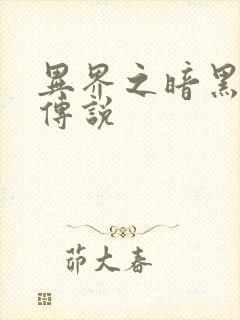 異界之暗黑
傳說
茆大春